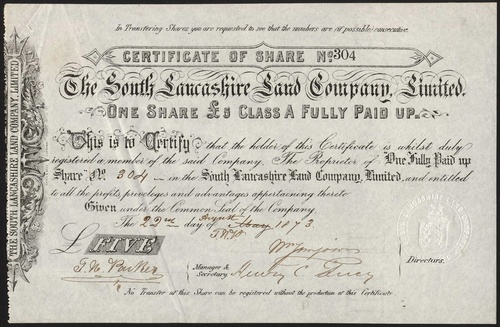 In Transferring Shares you are requested to see that the numbers are (if possible) consecutive.
CERTIFICATE OF SHARE No. 304
The South Lancashire Land Company, Limited.
ONE SHARE £5 CLASS A FULLY PAID UP.
This is to Certify that the holder of this Certificate is whilst duly
registered a member of the said Company. The Proprietor of One Fully Paid up
Share No. 304 in the South Lancashire Land Company, Limited, and entitled
to all the profits, privileges and advantages appertaining thereto.
Given under the Common Seal of the Company.
August
The 22nd day of May 1873
£ FIVE
Directors.
Manager & Secretary
No Transfer of this Share can be registered without the production of this Certificate
THE SOUTH LANCASHIRE LAND COMPANY, LIMITED